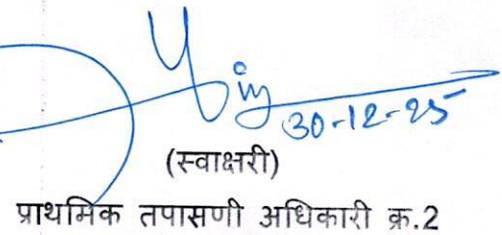 30-12-25
(स्वाक्षरी)
प्राथमिक तपासणी अधिकारी क्र.2